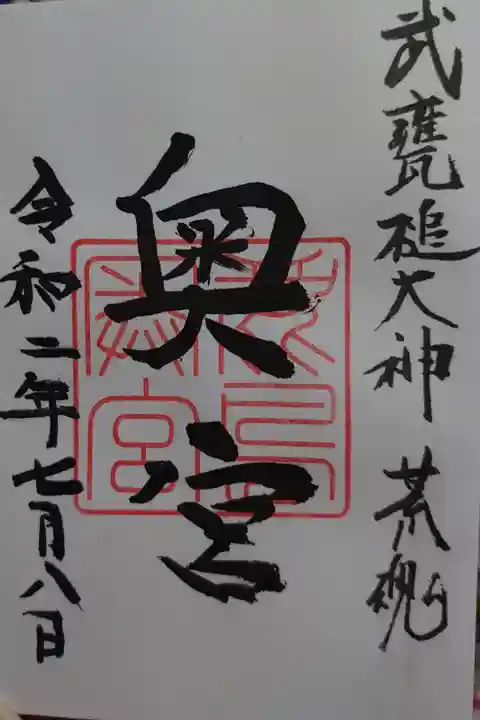 武甕槌大神 荒魂
奥宮
令和二年七月八日